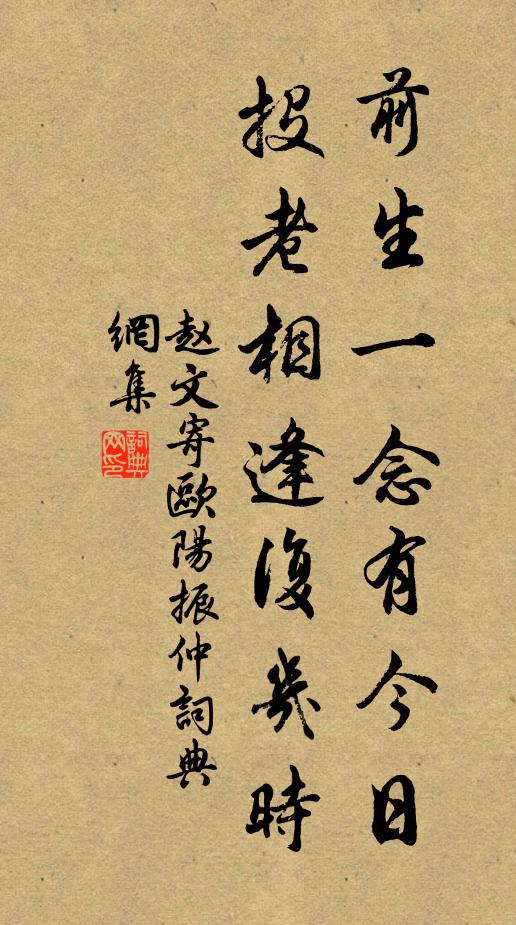 前生一念有今日
投老相逢復幾時
赵文寄歐陽振仲詞典
網集
詞典
网印